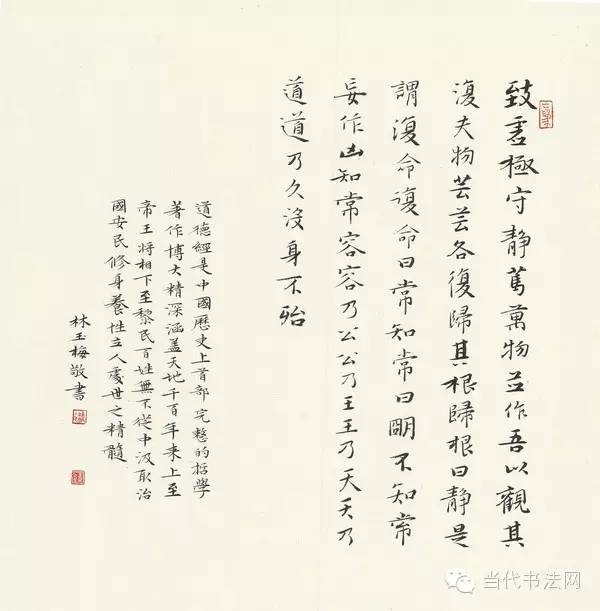 致虛極守靜篤萬物並作吾以觀其
復夫物芸芸各復歸其根歸根曰靜是
謂復命復命曰常知常曰明不知常
妄作凶知常容容乃公公乃王王乃天天乃
道道乃久沒身不殆
道德經是中國歷史上首部完整的哲學
著作博大精深涵蓋天地千百年來上至
帝王將相下至黎民百姓無不從中汲取治
國安民修身養性立人處世之精髓
林玉梅敬書
当代书法网